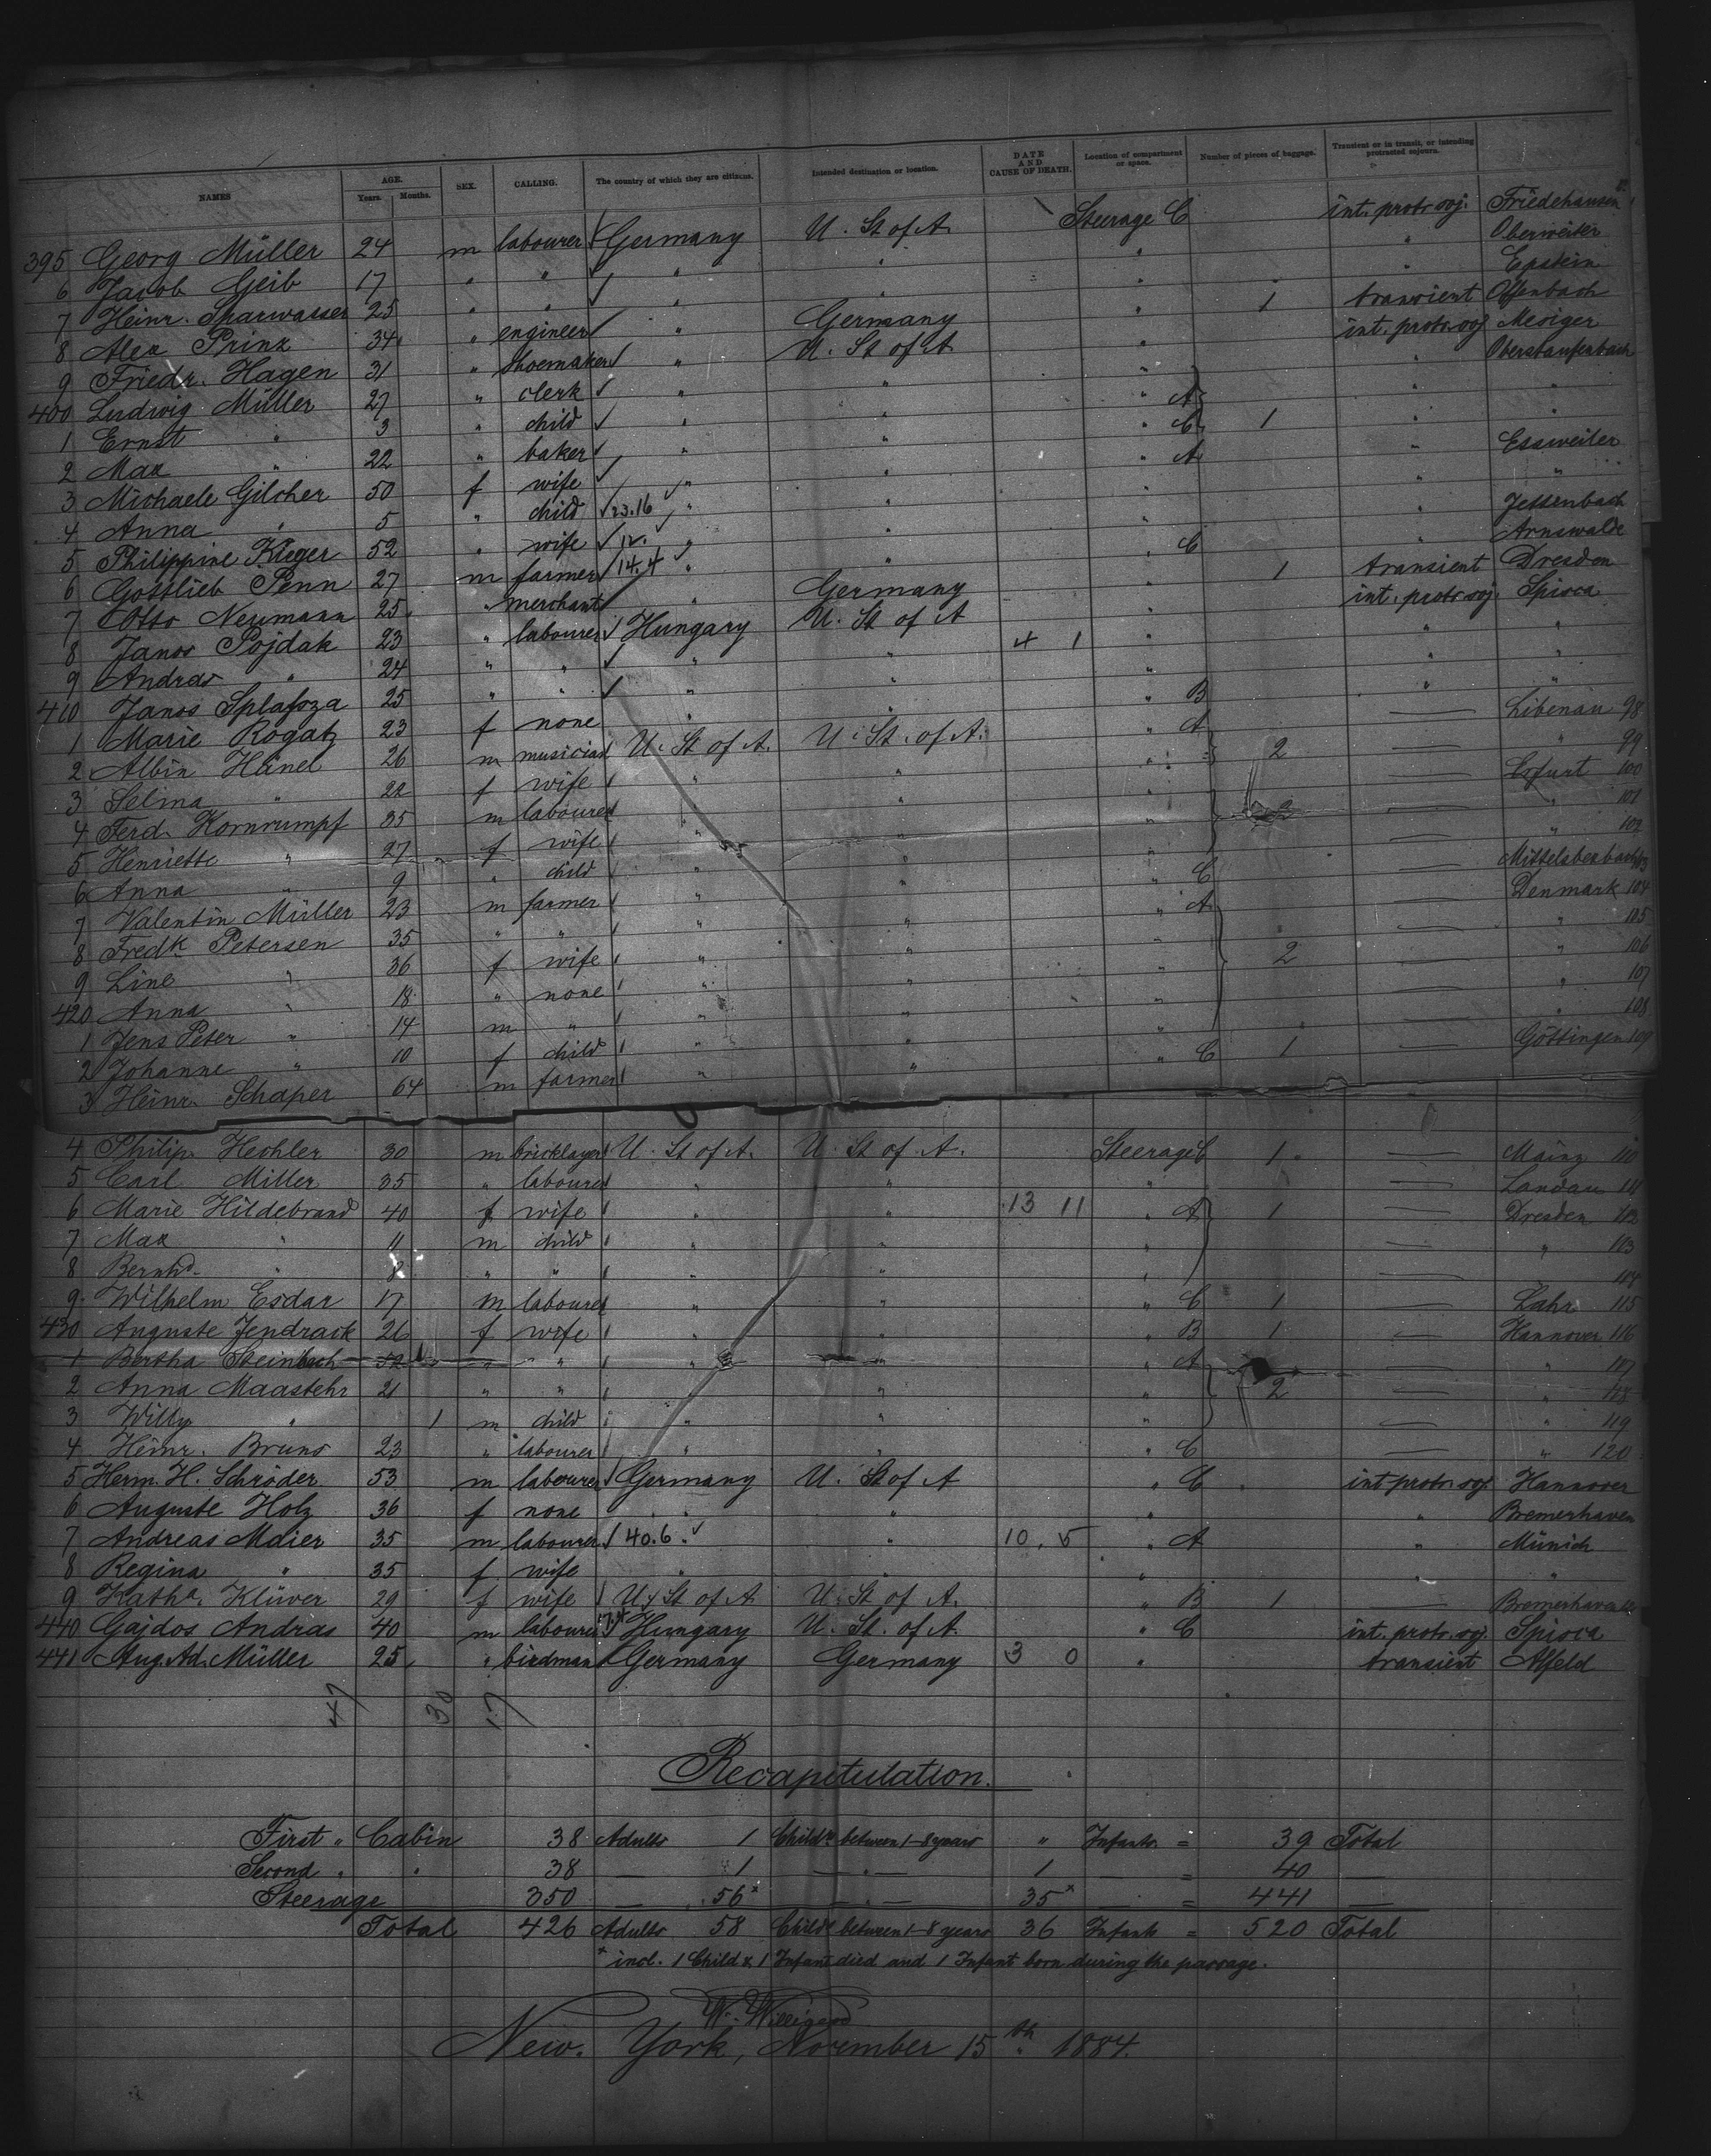 NAMES AGE. Years. Months. SEX. CALLING. The country of which they are citizens. Intended destination or location. DATE AND CAUSE OF DEATH. Location of compartment or space. Number of pieces of baggage. Transient or in transit, or intending protracted sojourn.
395 Georg Müller 24 m labourer Germany U. St of A Steerage C int. protr. soj. Friedehausen
6 Jacob Geib 17 " " " " " " Oberweiler
7 Heinr. Sparwasser 25 " " " " " " Epstein
8 Alex Prinz 34 " engineer " Germany " 1 transient Offenbach
9 Friedr. Hagen 31 " shoemaker " U. St of A " int. protr. soj
400 Ludwig Müller 27 " clerk " " " A " Oberstaufenbach
1 Ernst " 3 " child " " " C 1 " "
2 Max " 22 " baker " " " A " "
3 Michaele Gilcher 50 f wife " " " " Essweiler
4 Anna " 5 " child 23.16 " " " " "
5 Philippine Kieger 52 " wife " " " " Jettenbach
6 Gottlieb Penn 27 m farmer 14.4 " " " C " Arnswalde
7 Otto Neumann 25 " merchant " Germany " 1 transient Dresden
8 Janos Pojdak 23 " labourer Hungary U. St of A " int. protr. soj. Spioca
9 Andras " 24 " " " " 4 1 " " "
410 Janos Splafoza 25 " " " " " " "
1 Marie Rogatz 23 f none " " " B " "
2 Albin Hänel 26 m musician U. St of A. U. St. of A. " A 2 — Libenau 98
3 Selma " 22 f wife " " " — " 99
4 Ferd. Kornrumpf 35 m labourer " " " — Erfurt 100
5 Henriette " 27 f wife " " " — " 101
6 Anna " 9 " child " " " — " 102
7 Valentin Müller 23 m farmer " " " C — Mittelbexbach 103
8 Fredk. Petersen 35 " " " " " A — Denmark 104
9 Line " 36 f wife " " " 2 — " 105
420 Anna " 18 " none " " " — " 106
1 Jens Peter " 14 m " " " " — " 107
2 Johanne " 10 f child " " " — " 108
3 Heinr. Schaper 64 m farmer " " " C 1 — Göttingen 109
4 Philip Hechler 30 m bricklayer U. St of A. U. St of A. Steerage C 1 — Mainz 110
5 Carl Miller 35 " labourer " " " — Landau 111
6 Marie Hildebrand 40 f wife " " 13 11 " A 1 — Dresden 112
7 Max " 11 m child " " " — " 113
8 Bernhd. " 8 " " " " " — 114
9 Wilhelm Esdar 17 m labourer " " " C 1 — Lahr 115
430 Auguste Jendrack 26 f wife " " " B 1 — Hannover 116
1 Bertha Steinbach 52 " " " " " A — " 117
2 Anna Maastehr 21 " " " " " 2 — " 118
3 Willy " 1 m child " " " — " 119
4 Heinr. Bruns 23 " labourer " " " C — " 120
5 Herm. H. Schröder 53 m labourer Germany U. St of A " C int protr. soj. Hannover
6 Auguste Holz 36 f none " " " " Bremerhaven
7 Andreas Maier 35 m labourer 40.6. " 10. 5 " A " Münich
8 Regina " 35 f wife " " " " "
9 Katha. Klüver 29 f wife U. St of A U. St of A. " B 1 — Bremerhaven
440 Gajdos Andras 40 m labourer Hungary U. St. of A. " C int. protr. soj. Spioca
441 Aug. Ad. Müller 25 " birdman Germany Germany 3 0 " transient Alfeld
47 30 17
Recapitulation.
First " Cabin 38 Adults 1 Childn. between 1-8 years " Infants = 39 Total
Second " " 38 — 1 — " — 1 — = 40 —
Steerage 350 — 56* — " — 35* — = 441 —
Total 426 Adults 58 Childn between 1-8 years 36 Infants = 520 Total
* incl. 1 Child & 1 Infant died and 1 Infant born during the passage.
W. Willigerod
New. York, November 15th. 1884.